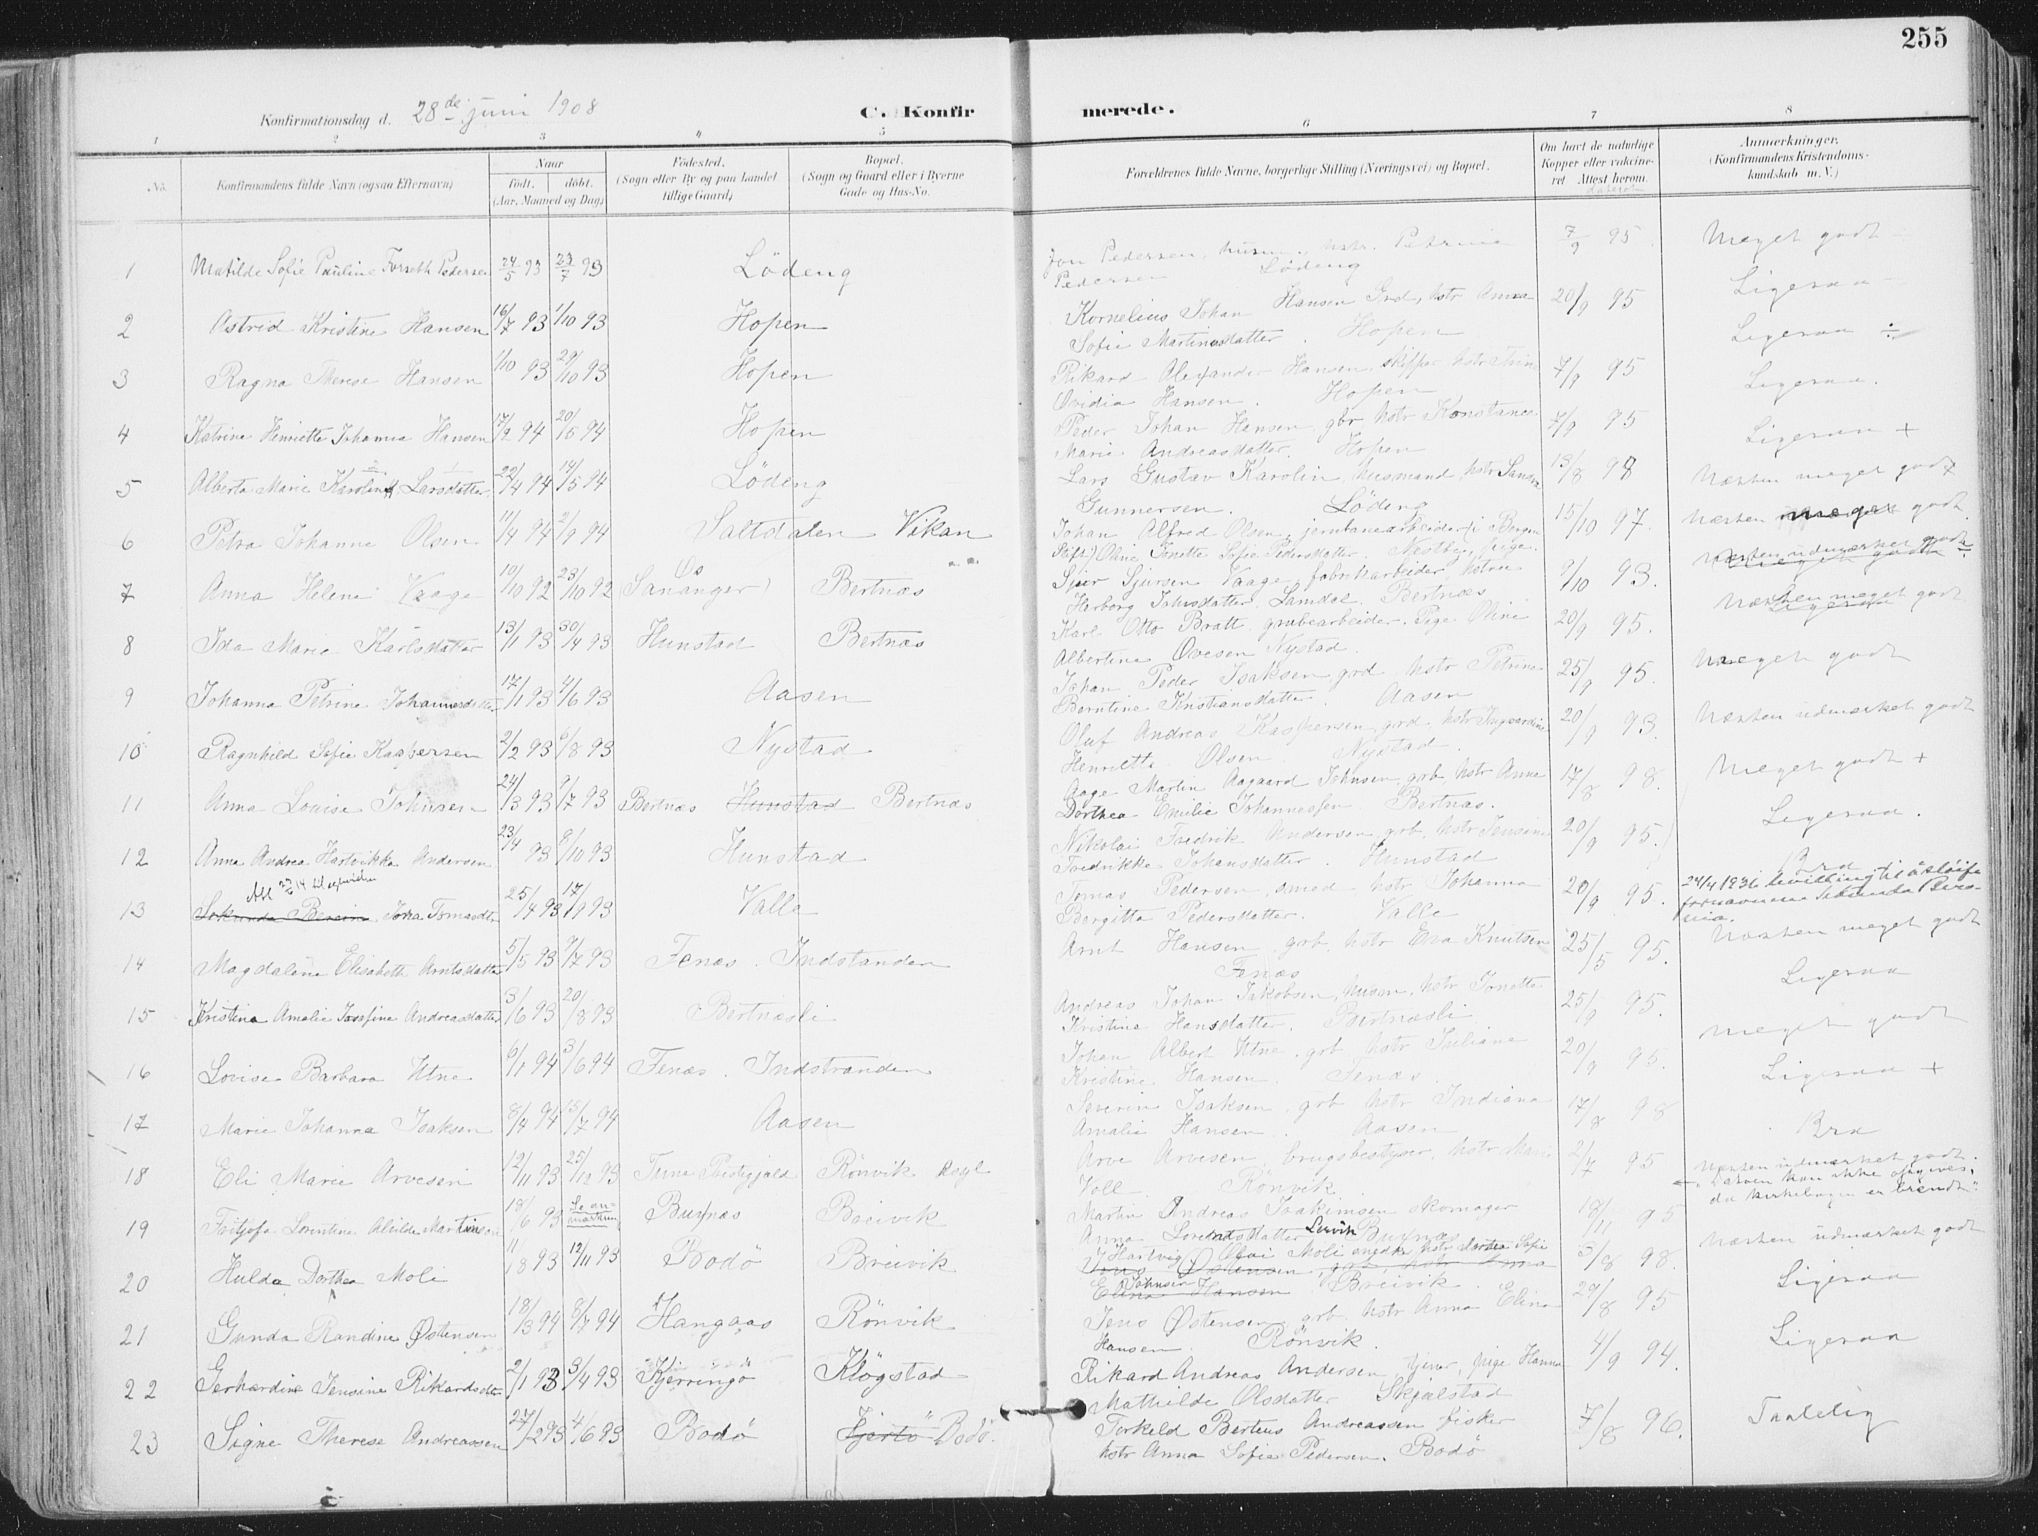 255
Konfirmationsdag d. 28de juni 1908
C. Konfirmerede.
1 2 3 4 5 6 7 8
No.
Konfirmandens fulde Navn (ogsaa Efternavn)
Naar
født. døbt.
(Aar, Maaned og Dag)
Födested.
(Sogn eller By og paa Landet tillige Gaard)
Bopæl.
(Sogn og Gaard eller i Byerne Gade og Hus-No.
Forældrenes fulde Navne, borgerlige Stilling (Næringsvei) og Bopæl.
Om havt de naturlige Kopper eller vaccineret Attest herom.
Anmærkninger.
(Konfirmandens Kristendomskundskab m. V.)
1 Matilde Sofie Pauline Forseth Pedersen 24/5 93 23/7 93 Lödeng Jon Pedersen, husm., hstr. Petrine 7/9 95 Meget godt
Pedersen Lödeng
2 Astrid Kristine Hansen 16/7 93 1/10 93 Hopen Kornelius Johan Hansen Grd, hstr Anna 20/9 95 Ligesaa
Sofie Martinusdatter. Hopen
3 Ragna Therese Hansen 1/10 93 29/10 93 Hopen Rikard Alexander Hansen, skipper, hstr Trine 7/9 95 Ligesaa ÷
Ovidia Hansen. Hopen
4 Katrine Henriette Johanna Hansen 17/2 94 20/5 94 Hopen Peder Johan Hansen, gbr, hstr Konstance 7/9 95 Ligesaa.
Marie Andreasdatter. Hopen
5 Alberta Marie Karoline Larsdatter 22/4 94 14/5 94 Lödeng Lars Gustav Karolin, husmand, hstr Sandra 13/8 98 Ligesaa +
Gunnersen. Lödeng
6 Petra Johanne Olsen 11/4 94 2/9 94 Saltdalen Vikan Johan Alfred Olsen, jernbanearbeider (i Bergens 15/10 97. Næsten meget godt
Stift) Oline Jenette Sofie Pedersdatter. Nestby, pige.
7 Anna Helene Vaage 10/10 92 23/10 92 Os (Sananger) Bertnæs Sjur Sjursen Vaage, fabrikarbeider, hstru 9/10 93. Næsten meget godt
Herborg Johnsdatter Samdal. Bertnæs
8 Ida Marie Karlsdatter 13/1 93 30/4 93 Hunstad Bertnæs Karl Otto Bratt, grubearbeider. Pige Oline 20/9 95. Næsten udmærket godt
Albertine Ovesen Nystad.
9 Johanna Petrine Johannesdatter 17/1 93 4/6 93 Aasen Johan Peder Isaksen, grd. hstr Petrine 25/9 95. Næsten meget godt
Berntine Kristiansdatter. Aasen
10 Ragnhild Sofie Kaspersen 2/2 93 6/8 93 Nystad Oluf Andreas Kaspersen, grd. hstr Ingvardine 20/9 93. Meget godt
Henriette Olsen Nystad.
11 Anna Louise Johnsen 24/3 93 9/7 93 Bertnæs Hunstad Bertnæs Aage Martin Aagaard Johnsen, grb, hstr Anna 17/8 98. Næsten udmærket godt
Dorthea Emilie Johannessen. Bertnæs.
12 Anna Andrea Hartvikka Andersen 23/4 93 8/10 93 Hunstad Nikolai Fredrik Andersen, grb, hstr Jensine 20/9 95. Meget godt +
Fredrikke Johansdatter. Hunstad
13 Sekunda Berein Joha Tomasdtr 25/4 93 17/9 93 Valle Tomas Pedersen, smed, hstr Johanna 20/9 95. Ligesaa.
Bergitte Pedersdatter. Valle
Bra
24/4 1936 bevilling til å sløife fornavnene Sekunda Berenia.
14 Magdalene Elisabeth Arntsdatter 5/5 93 9/7 93 Fenæs. Indstranden Arnt Hansen, grb, hstr Eva Knutsen 25/5 95. Næsten meget godt
Fenæs
15 Kristine Amalie Josefine Andreasdatter 3/6 93 20/8 93 Bertnæsli Andreas Johan Jakobsen, husm, hstr Jonette 25/9 95. Ligesaa
Kristine Hansdatter. Bertnæsli
16 Lovise Barbara Utne 6/1 94 3/6 94 Fenæs. Indstranden Johan Albert Utne, grb, hstr Juliane 20/9 95. Meget godt
Kristine Hansen. Fenæs.
17 Marie Johanna Isaksen 8/4 94 15/7 94 Aasen Severin Isaksen, grb, hstr Indiana 17/8 98 Ligesaa +
Amalie Hansen. Aasen
18 Eli Marie Arvesen 12/11 93 25/12 93 Tune Prestegjæld Rönvik Asyl Arve Arvesen, brugsbestyrer, hstr Marie 2/7 95 Bra
Voll. Rönvik.
19 Fritjofa Lorentine Alvilde Martinsen 18/6 93 Se anmærkning Buxnæs Breivik Martin Andreas Joakimsen skomager 18/11 95 Næsten udmærket godt.
"Daaben kan ikke opgives, da kirkebogen er brændt".
Anna Lorentsdatter Lervik Buxnæs
20 Hulda Dorthea Moli 11/8 93 12/11 93 Bodö Breivik Hartvig Olai Moli snedker hstr Dorthea Sofie 3/8 98. Næsten udmærket godt
Jens Østensen grb, hstr Anna
Elina Hansen Johnsen Breivik.
21 Gunda Randine Østensen 18/3 94 8/7 94 Hangaas Rönvik Jens Østensen, grb, hstr Anna Elina 29/8 95 Ligesaa
Hansen. Rönvik.
22 Gerhardine Jensine Rikardsdtr 2/1 93 3/4 93 Kjerringö Klögstad Rikard Andreas Andersen, tjener, pige Hanna 4/9 94. Ligesaa
Mathilde Olsdatter Skjelstad
23 Signe Therese Andreassen 27/2 93 4/6 93 Bodö Hjertö Bodö. Torkeld Berteus Andreassen fisker 7/8 96. Taalelig
hstr Anna Sofie Pedersen. Bodö